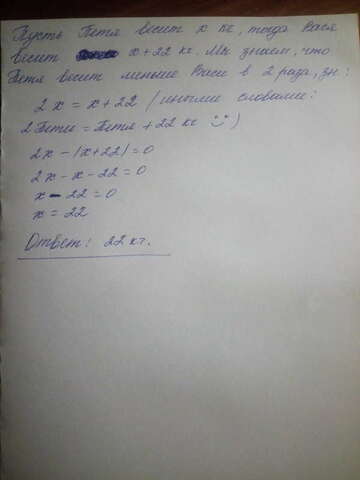 Пусть Петя весит x кг, тогда Вася
весит x+22 кг. Мы знаем, что
Петя весит меньше Васи в 2 раза, зн.:
2x = x+22 (иными словами:
2 Пети = Петя + 22 кг ☺)
2x - (x+22) = 0
2x - x - 22 = 0
x - 22 = 0
x = 22
Ответ: 22 кг.